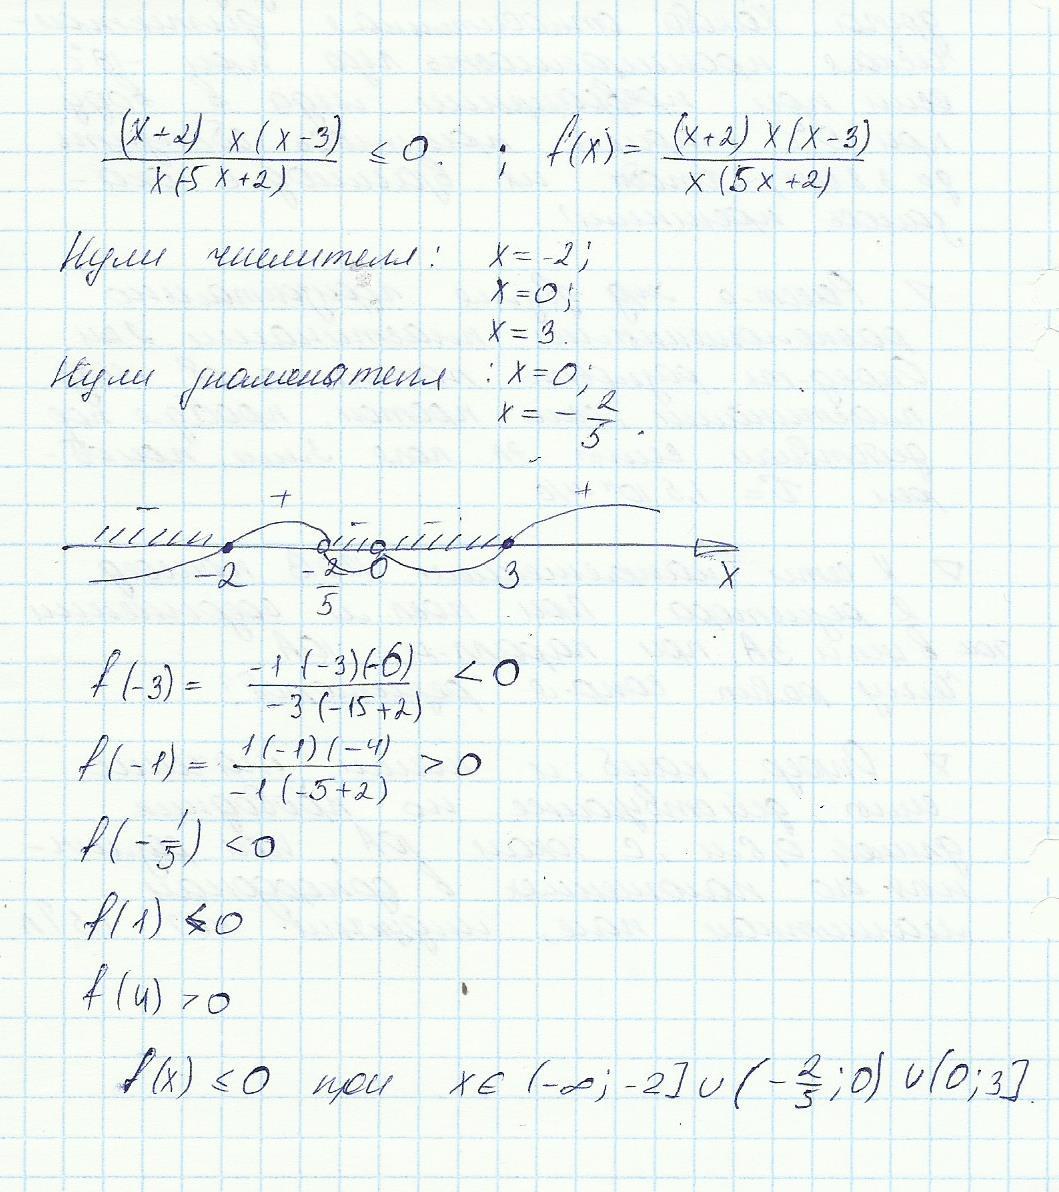 (x+2) x(x-3) / x(5x+2) ≤ 0. ; f(x) = (x+2) x(x-3) / x(5x+2)
Нули числителя: x=-2;
x=0;
x=3.
Нули знаменателя: x=0;
x=-2/5.
- + - - +
-2 -2/5 0 3 x
f(-3) = -1(-3)(-6) / -3(-15+2) < 0
f(-1) = 1(-1)(-4) / -1(-5+2) > 0
f(-1/5) < 0
f(1) < 0
f(4) > 0
f(x) ≤ 0 при x∈(-∞;-2]∪(-2/5;0)∪(0;3].